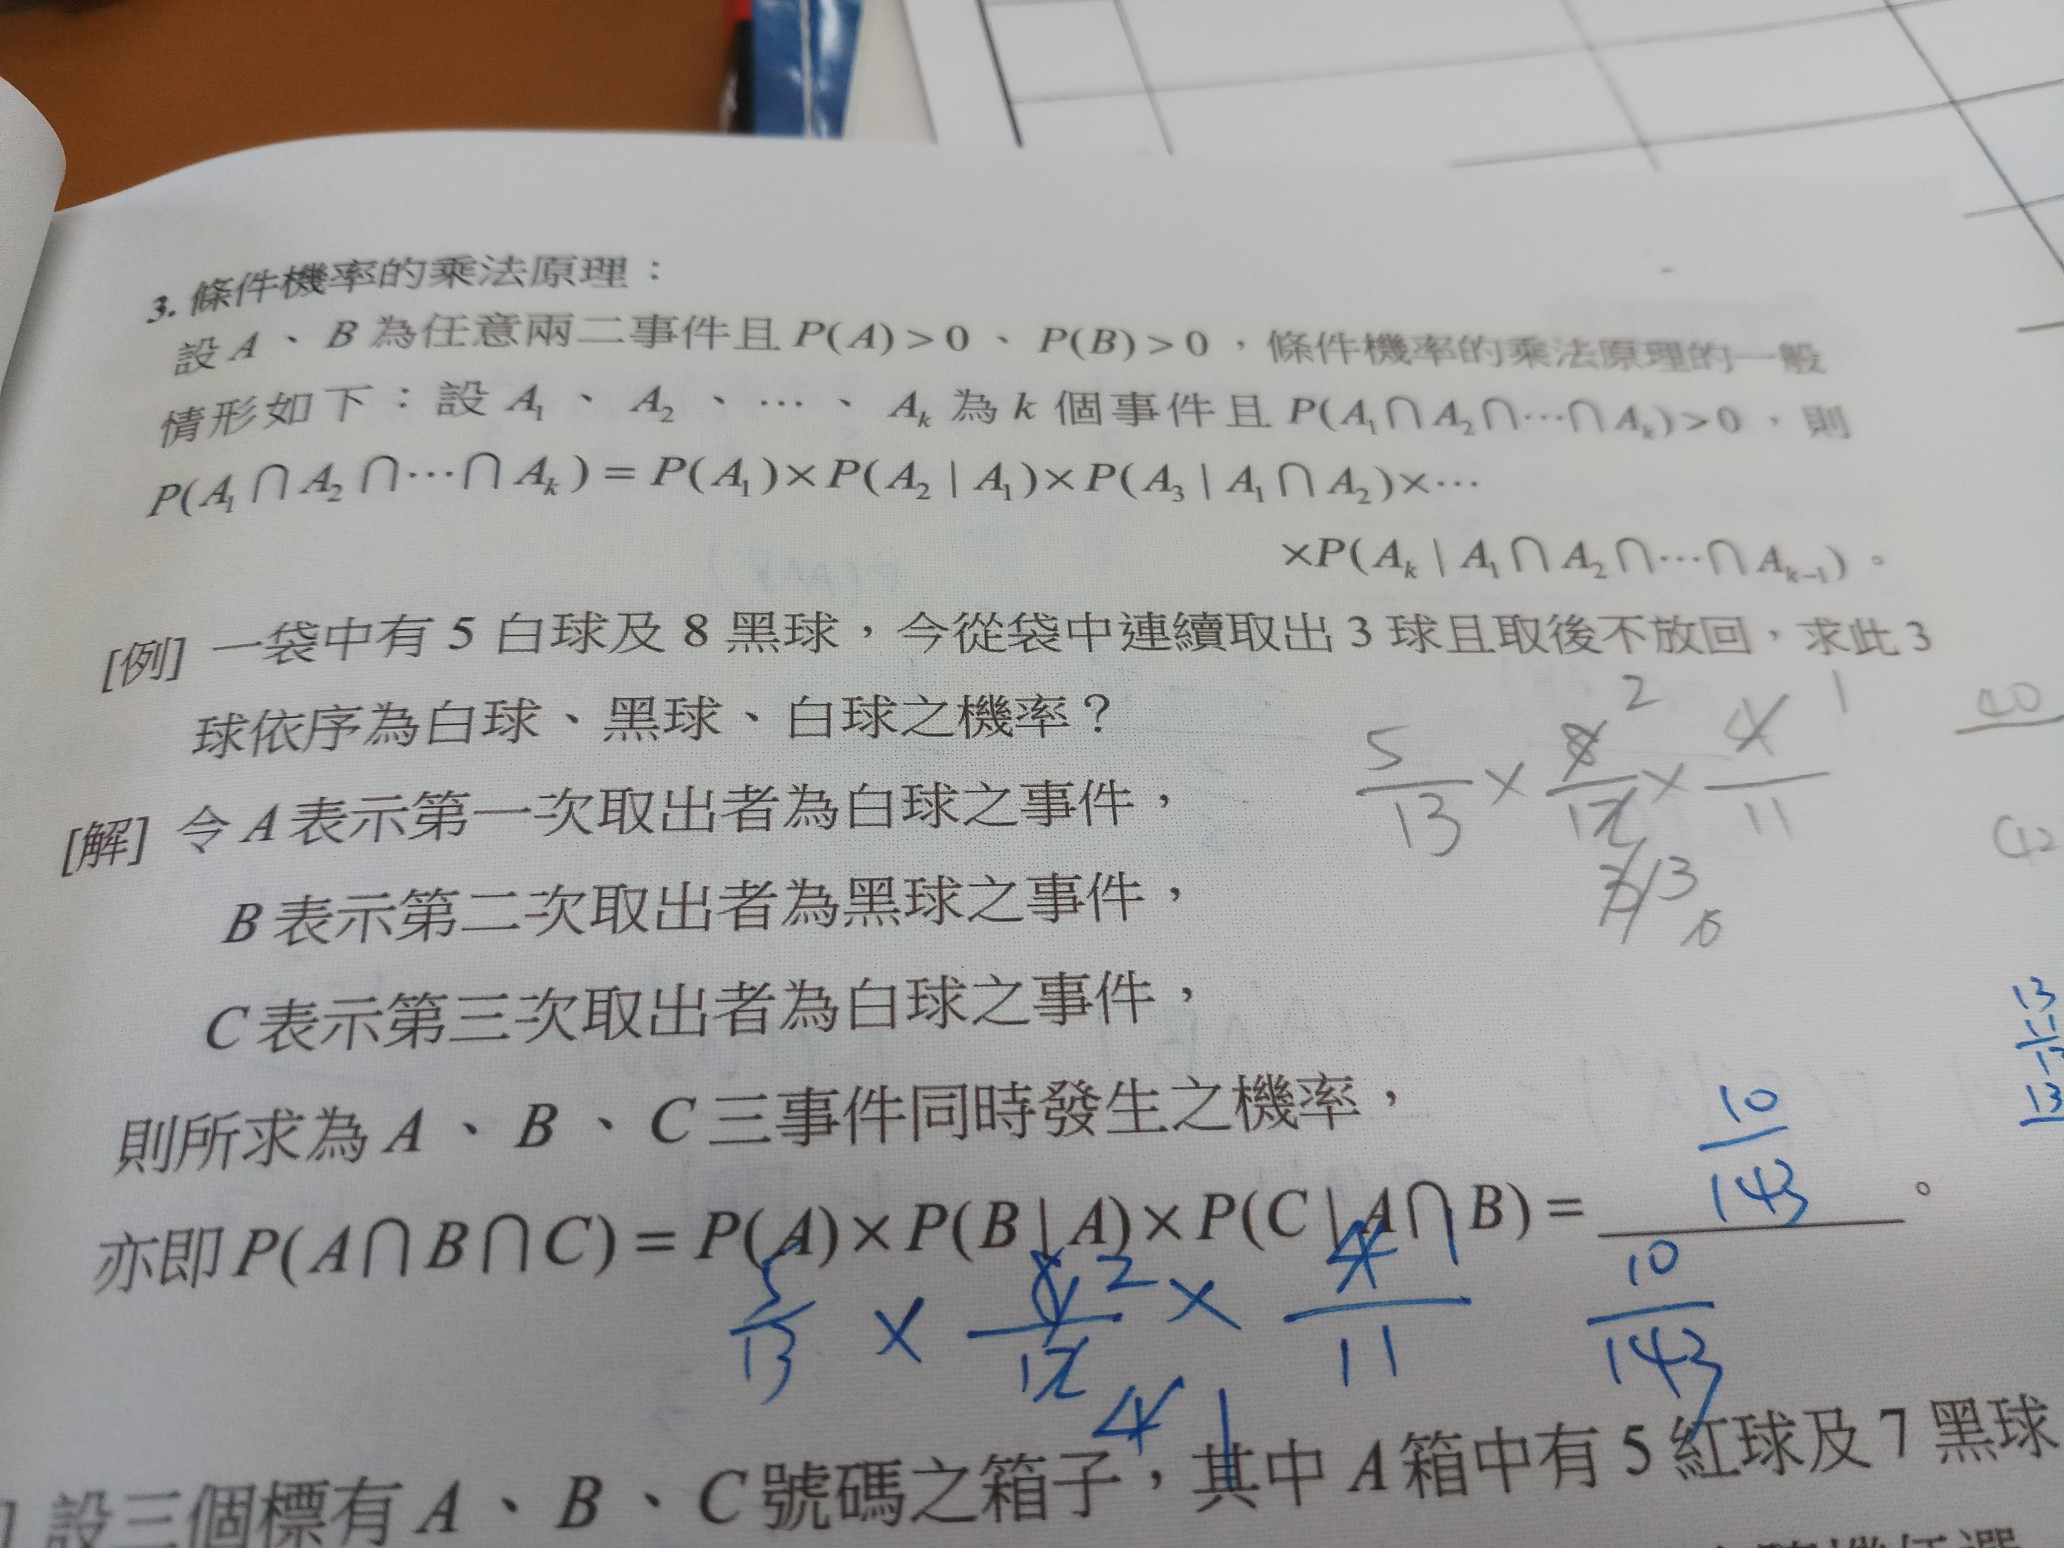 3. 條件機率的乘法原理：
設 A、B 為任意兩二事件且 P(A)>0、P(B)>0，條件機率的乘法原理的一般
情形如下：設 A₁、A₂、⋯、Aₖ 為 k 個事件且 P(A₁∩A₂∩⋯∩Aₖ)>0，則
P(A₁∩A₂∩⋯∩Aₖ)=P(A₁)×P(A₂|A₁)×P(A₃|A₁∩A₂)×⋯
×P(Aₖ|A₁∩A₂∩⋯∩Aₖ₋₁)。
[例] 一袋中有 5 白球及 8 黑球，今從袋中連續取出 3 球且取後不放回，求此 3
球依序為白球、黑球、白球之機率？
2 1
5/13 × 8/12 × 4/11
40
3
[解] 令 A 表示第一次取出者為白球之事件，
B 表示第二次取出者為黑球之事件，
C 表示第三次取出者為白球之事件，
13
11
13
則所求為 A、B、C 三事件同時發生之機率，
亦即 P(A∩B∩C)=P(A)×P(B|A)×P(C|A∩B)= 10/143 。
5/13 × 8/12 × 4/11 10/143
2
4 1
設三個標有 A、B、C 號碼之箱子，其中 A 箱中有 5 紅球及 7 黑球